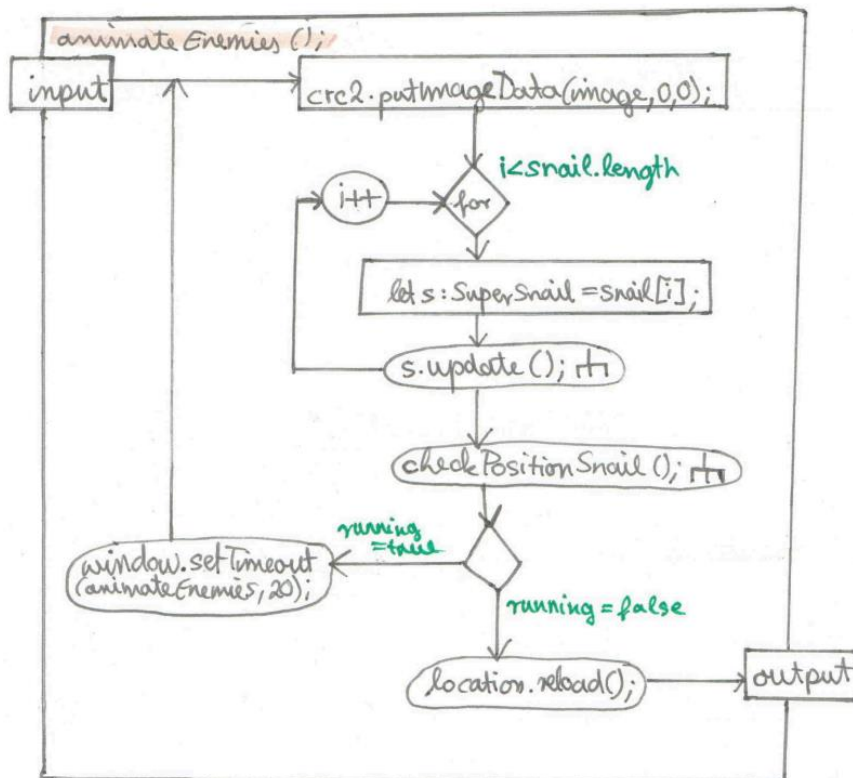 animateEnemies();
input
crc2.putImageData(image,0,0);
i<snail.length
i++
for
let s:SuperSnail=snail[i];
s.update();
checkPositionSnail();
running
=true
window.setTimeout
(animateEnemies,20);
running=false
location.reload();
output